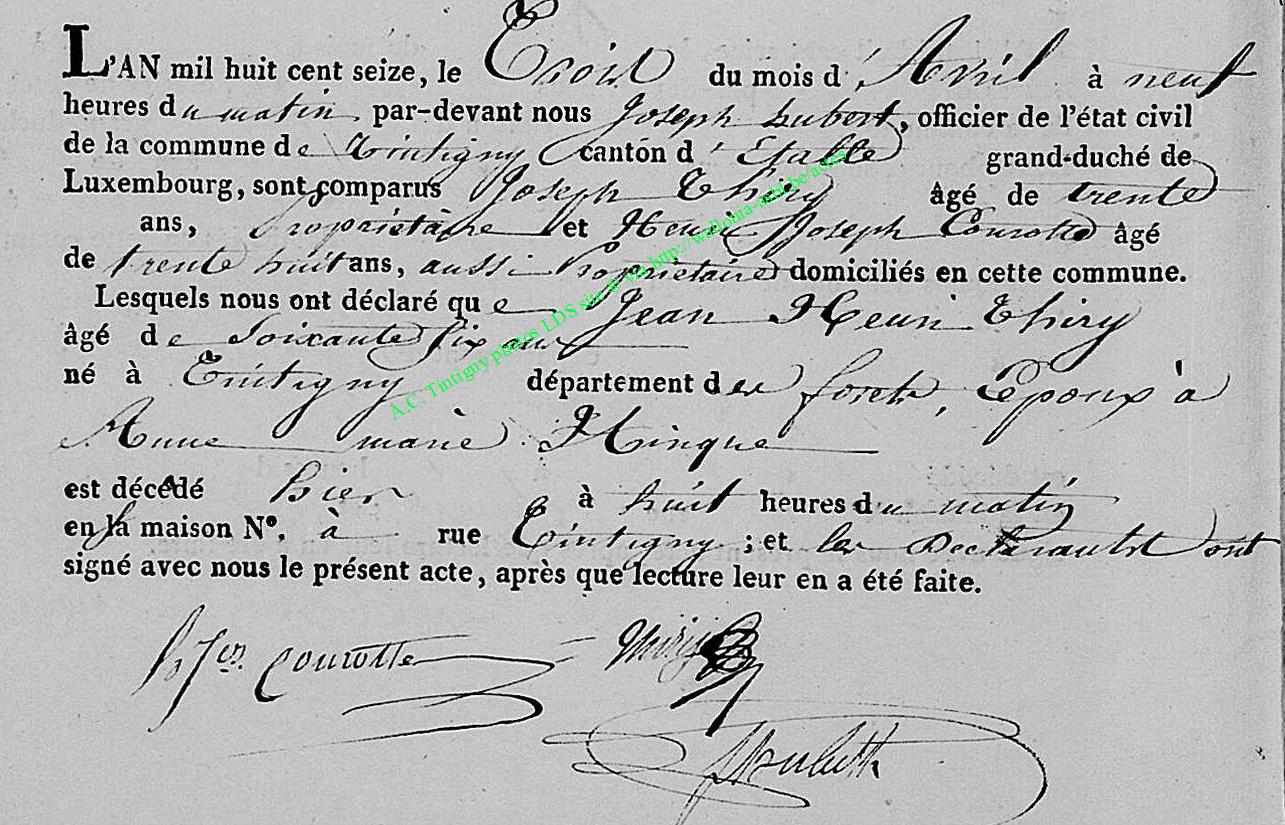 L'AN mil huit cent seize, le Trois du mois d'Avril à neuf
heures du matin, par-devant nous Joseph hubert, officier de l'état civil
de la commune de Tintigny canton d'Etalle grand-duché de
Luxembourg, sont comparus Joseph Thiry âgé de trente
ans, Propriétaire et Henri Joseph Courotte âgé
de trente huit ans, aussi Propriétaire domiciliés en cette commune.
Lesquels nous ont déclaré que Jean Henri Thiry
âgé de Soixante six ans
né à Tintigny département des forets, Epoux à
Anne marie Hinque
est décédé hier à huit heures du matin
en la maison N°. à rue Tintigny ; et les Declarants ont
signé avec nous le présent acte, après que lecture leur en a été faite.
h Jh courotte
Thiry
J hubert
A.C. Tintigny photos LDS site & via http://wallonia-asbl.be/actes